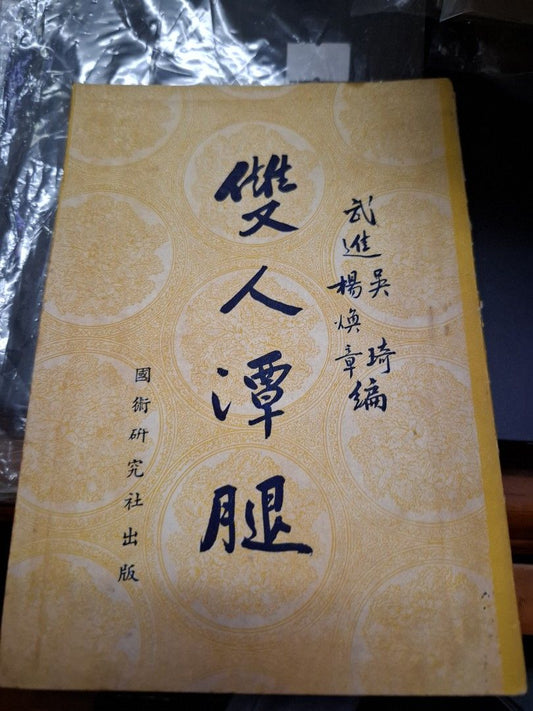 武進吳琦
楊煥章編
雙人潭腿
國術研究社出版